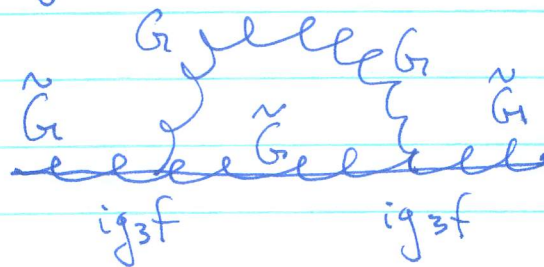 G G
G̃ G̃ G̃
ig₃f ig₃f